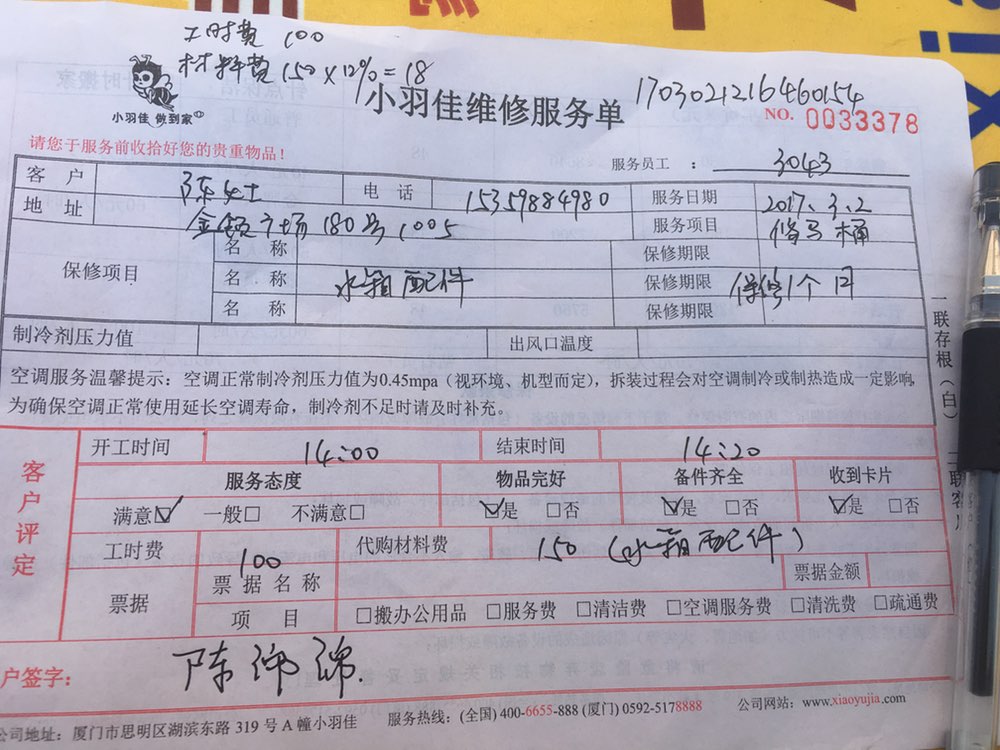 工时费 100
材料费 150×12%=18
小羽佳 做到家
小羽佳维修服务单
1703021216460154
NO. 0033378
请您于服务前收拾好您的贵重物品！
服务员工 ： 3043
客 户 陈女士 电 话 15359884980 服务日期 2017.3.2
地 址 金领广场180号1005 服务项目 修马桶
保修项目
名 称 保修期限
名 称 水箱配件 保修期限 保修1个月
名 称 保修期限
制冷剂压力值 出风口温度
空调服务温馨提示：空调正常制冷剂压力值为0.45mpa（视环境、机型而定），拆装过程会对空调制冷或制热造成一定影响，
为确保空调正常使用延长空调寿命，制冷剂不足时请及时补充。
客户评定
开工时间 14:00 结束时间 14:20
服务态度 物品完好 备件齐全 收到卡片
满意☑ 一般□ 不满意□ ☑是 □否 ☑是 □否 ☑是 □否
工时费 100 代购材料费 150（水箱配件）
票据 票据名称 票据金额
项 目 □搬办公用品 □服务费 □清洁费 □空调服务费 □清洗费 □疏通费
户签字： 陈沛沛.
公司地址：厦门市思明区湖滨东路 319 号 A 幢小羽佳 服务热线：(全国) 400-6655-888 (厦门) 0592-5178888 公司网站：www.xiaoyujia.com
一联存根（白）
二联客户